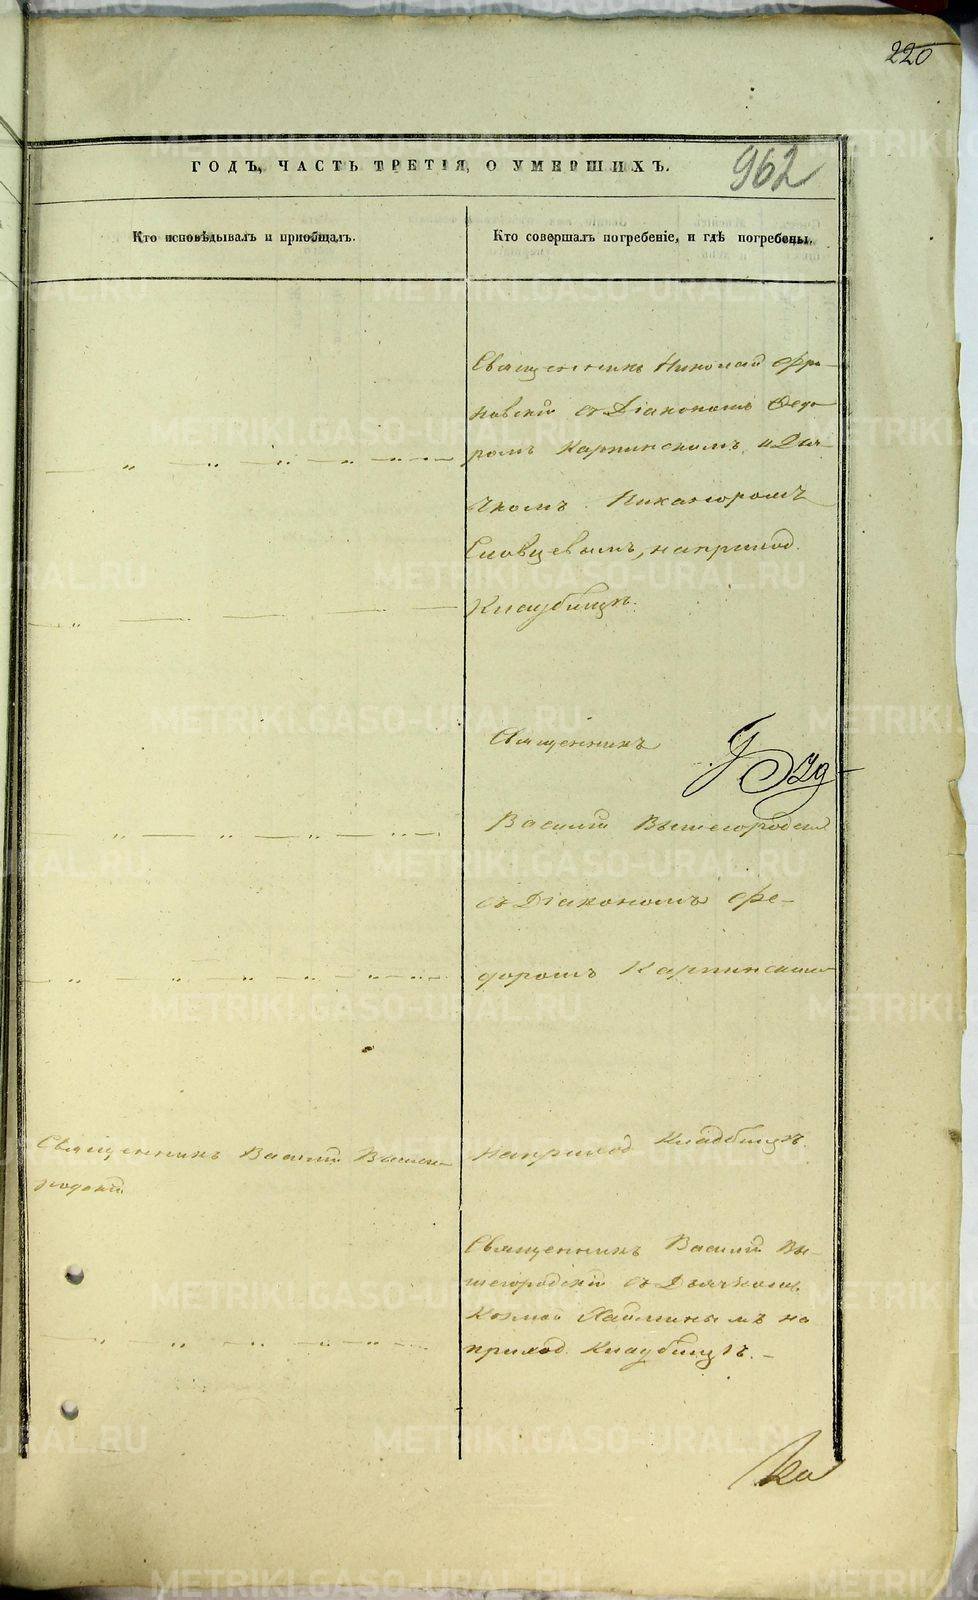 220
ГОДЪ, ЧАСТЬ ТРЕТІЯ, О УМЕРШИХЪ.
962
Кто исповѣдывалъ и пріобщалъ.
Кто совершалъ погребеніе, и гдѣ погребены.
Священникъ Николай
съ Діакономъ Ѳедо
ромъ Карпинскимъ, и Дья-
чкомъ Никаноромъ
Словцевымъ, на приход.
Кладбищѣ.
Священникъ
Василій Вышегородскій
съ Діакономъ Ѳе-
доромъ Карпинскимъ
Священникъ Василій Вышего
родскій
На приход Кладбищѣ.
Священникъ Василій Вы-
шегородскій съ Дьячкомъ
Козмой на
приход. Кладбищѣ.
METRIKI.GASO-URAL.RU